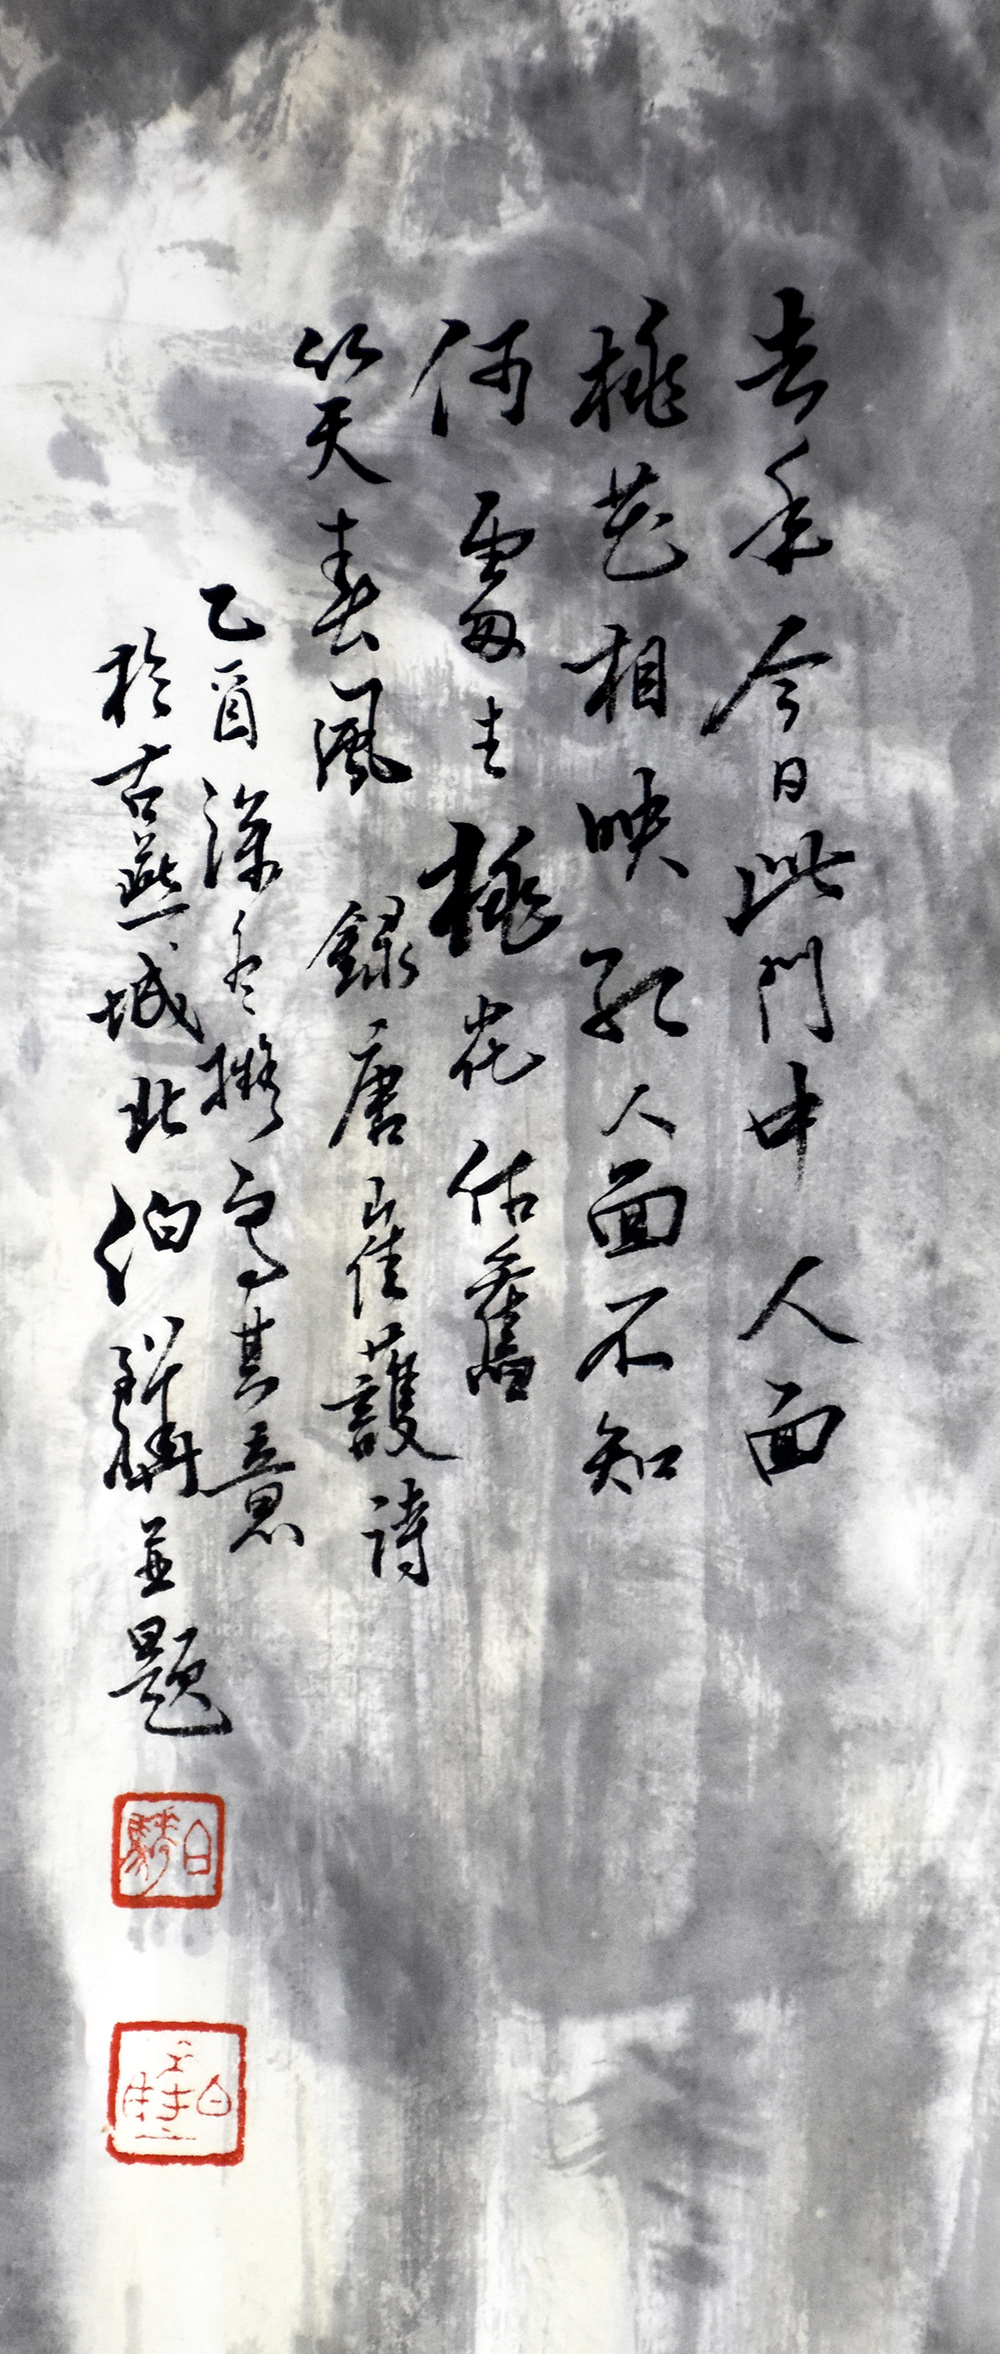 去年今日此門中人面
桃花相映紅人面不知
何處去桃花依舊
笑春風 錄唐崔護詩
乙酉深冬擬寫其意
於古燕城北伯驊並題
白
白